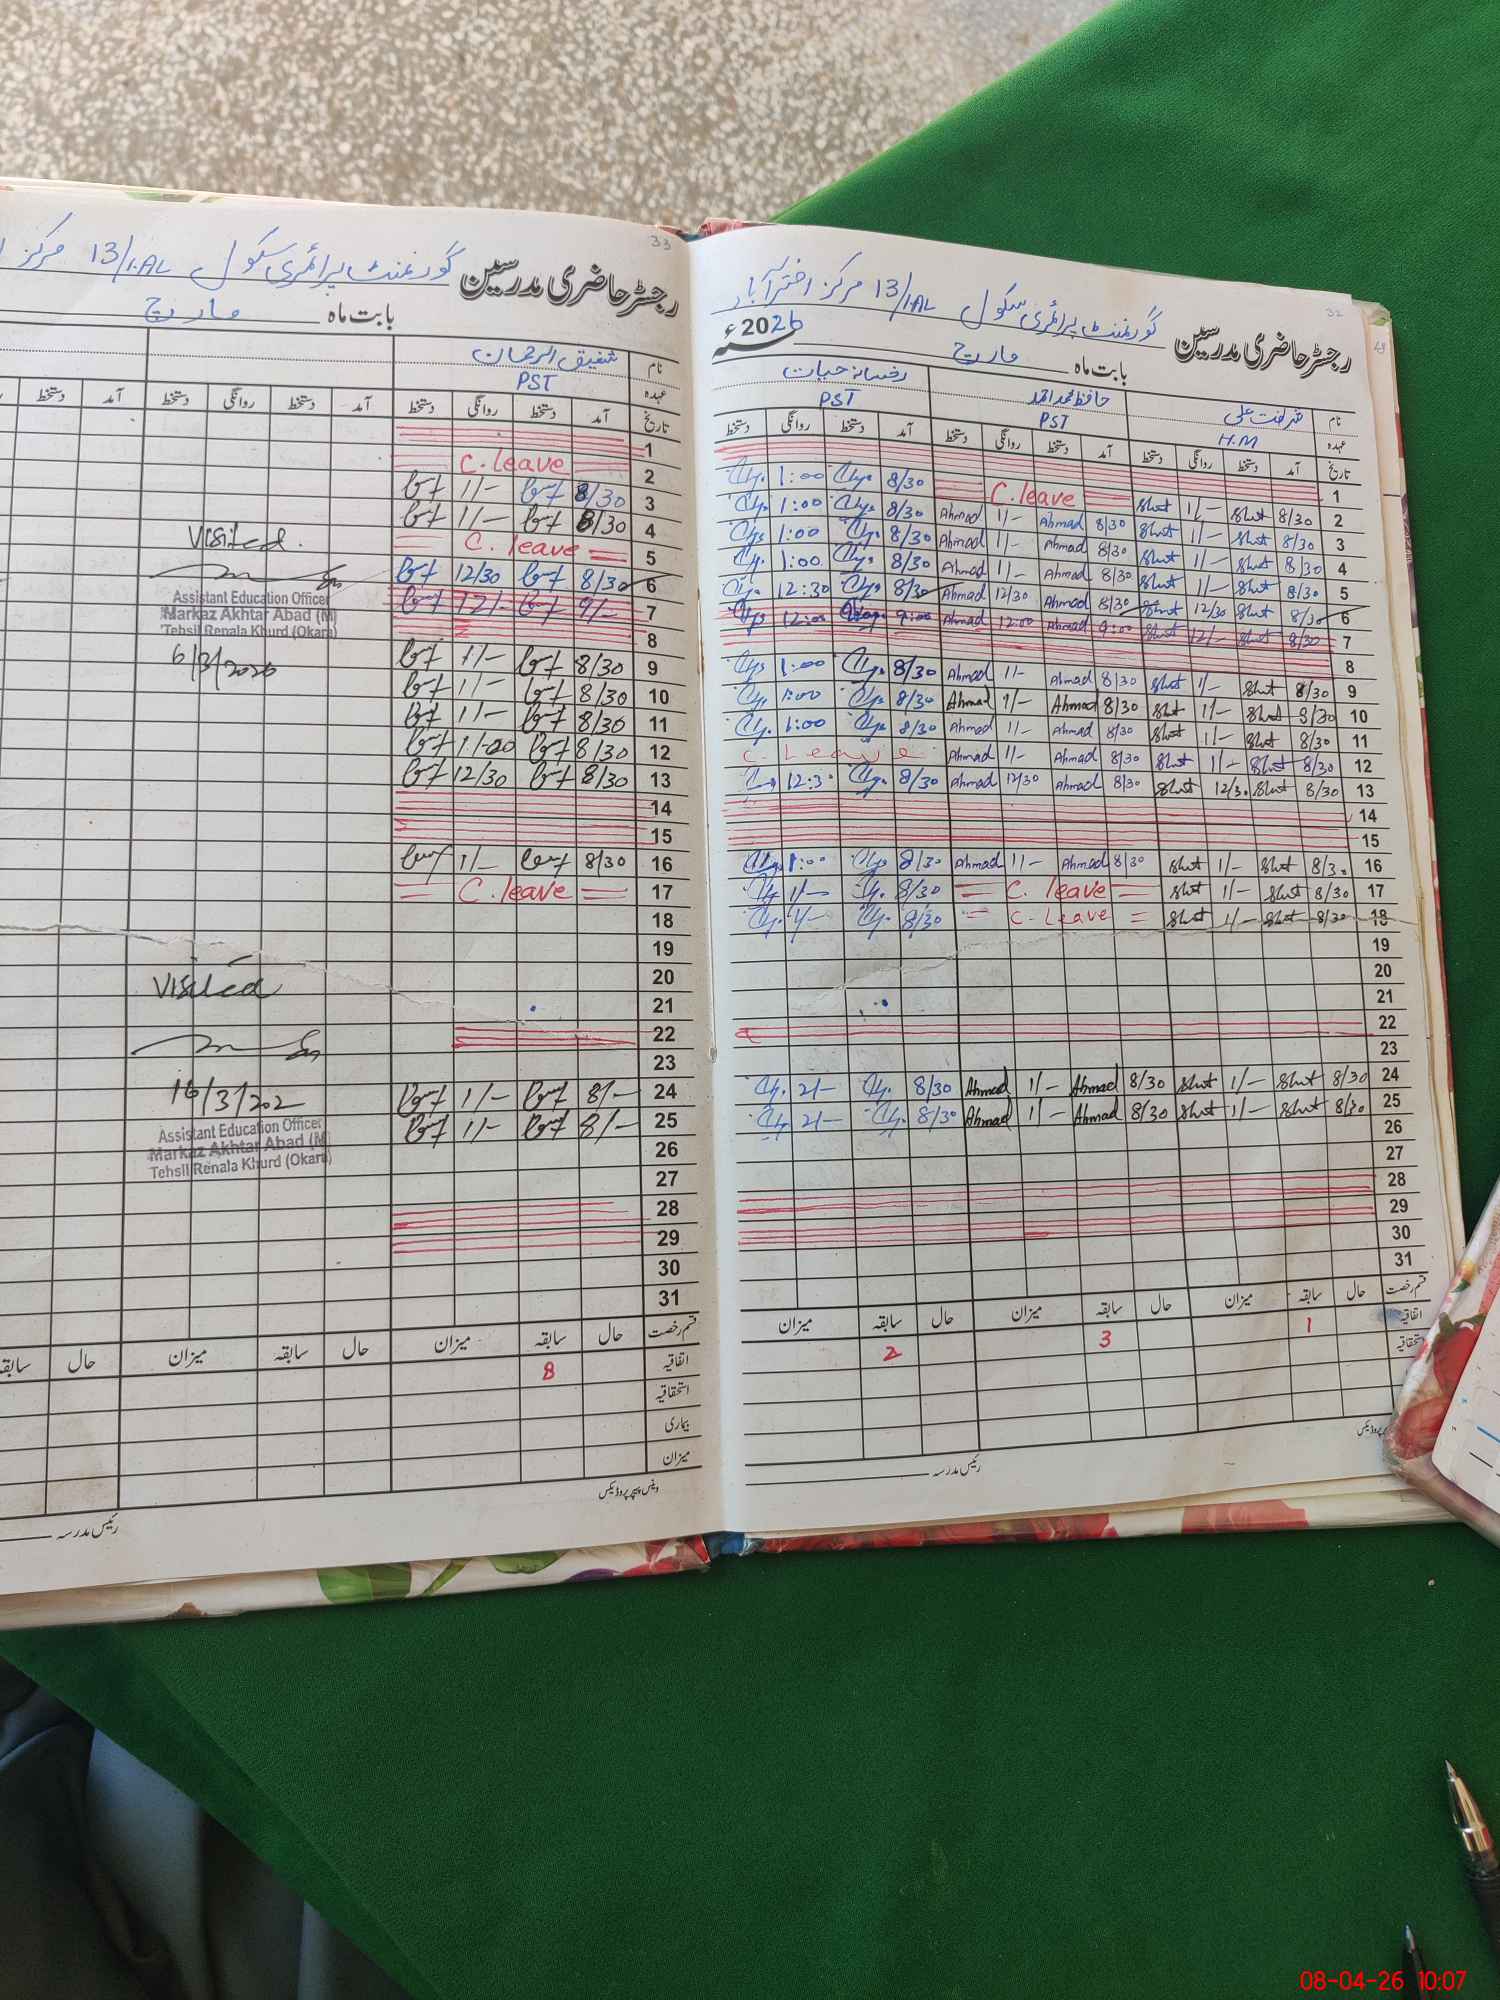 33
گورنمنٹ پرائمری سکول 13/1.AL مرکز
رجسٹر حاضری مدرسین
بابت ماہ مارچ
نام شفیق الرحمان
عہدہ PST
تاریخ آمد دستخط روانگی دستخط آمد دستخط روانگی دستخط آمد دستخط
1
2 C. leave
3 8/30 1/-
4 8/30 1/-
5 C. leave
6 8/30 12/30
7 9/- 12/-
8
9 8/30 1/-
10 8/30 1/-
11 8/30 1/-
12 8/30 1/-20
13 8/30 12/30
14
15
16 8/30 1/-
17 C. leave
18
19
20
21
22
23
24 8/- 1/-
25 8/- 1/-
26
27
28
29
30
31
Visited.
Assistant Education Officer
Markaz Akhtar Abad (M)
Tehsil Renala Khurd (Okara)
6/3/2026
Visited
16/3/202
Assistant Education Officer
Markaz Akhtar Abad (M)
Tehsil Renala Khurd (Okara)
قسم رخصت حال سابقہ میزان حال سابقہ میزان حال سابقہ
اتفاقیہ 8
استحقاقیہ
بیماری
میزان
وینس پیپر پروڈیکس
رئیس مدرسہ
32
گورنمنٹ پرائمری سکول 13/1.AL مرکز اختر آباد
رجسٹر حاضری مدرسین
بابت ماہ مارچ سنہ 2026ء
نام شرافت علی حافظ محمد احمد رخسانہ حیات
عہدہ H.M PST PST
تاریخ آمد دستخط روانگی دستخط آمد دستخط روانگی دستخط آمد دستخط روانگی دستخط
1
2 8/30 Shut 1/- Shut C. leave 8/30 1:00
3 8/30 Shut 1/- Shut 8/30 Ahmad 1/- Ahmad 8/30 1:00
4 8/30 Shut 1/- Shut 8/30 Ahmad 1/- Ahmad 8/30 1:00
5 8/30 Shut 1/- Shut 8/30 Ahmad 1/- Ahmad 8/30 1:00
6 8/30 Shut 12/30 Shut 8/30 Ahmad 12/30 Ahmad 8/30 12:30
7 8/30 Shut 12/- Shut 9:00 Ahmad 12:00 Ahmad 9:00 12:00
8
9 8/30 Shut 1/- Shut 8/30 Ahmad 1/- Ahmad 8/30 1:00
10 8/30 Shut 1/- Shut 8/30 Ahmad 1/- Ahmad 8/30 1:00
11 8/30 Shut 1/- Shut 8/30 Ahmad 1/- Ahmad 8/30 1:00
12 8/30 Shut 1/- Shut 8/30 Ahmad 1/- Ahmad C. Leave
13 8/30 Shut 12/30 Shut 8/30 Ahmad 12/30 Ahmad 8/30 12:3
14
15
16 8/30 Shut 1/- Shut 8/30 Ahmad 1/- Ahmad 8/30 1:00
17 8/30 Shut 1/- Shut C. leave 8/30 1/-
18 8/30 Shut 1/- Shut C. Leave 8/30 1/-
19
20
21
22
23
24 8/30 Shut 1/- Shut 8/30 Ahmad 1/- Ahmad 8/30 2/-
25 8/30 Shut 1/- Shut 8/30 Ahmad 1/- Ahmad 8/30 2/-
26
27
28
29
30
31
قسم رخصت حال سابقہ میزان حال سابقہ میزان حال سابقہ میزان
اتفاقیہ 1 3 2
استحقاقیہ
رئیس مدرسہ
08-04-26 10:07